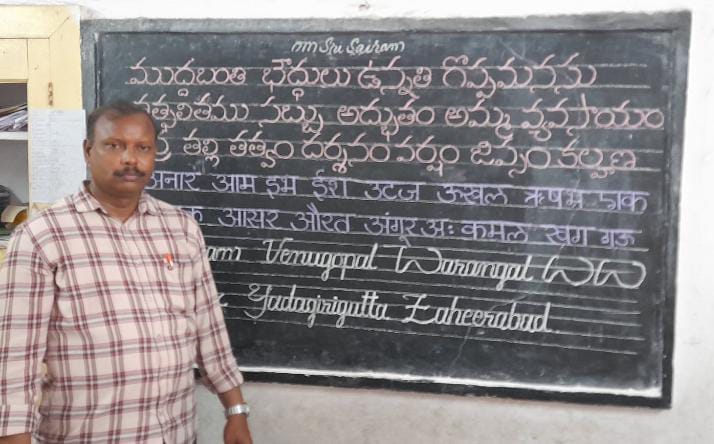 mm Sri Sairam
ముద్దబంతి భేధ్ధులు ఉన్నతి గొప్పమనసు
సబ్బు అద్భుతం అమ్మ వ్యవసాయం
తల్లి తత్వం దర్శనం వర్షం కల్పణ
अनार आम इम ईश उटज ऊखल ऋषभ एक
आसर औरत अंगूर अः कमल खग गऊ
Venugopal Warangal
Yadagirigutta Zaheerabad